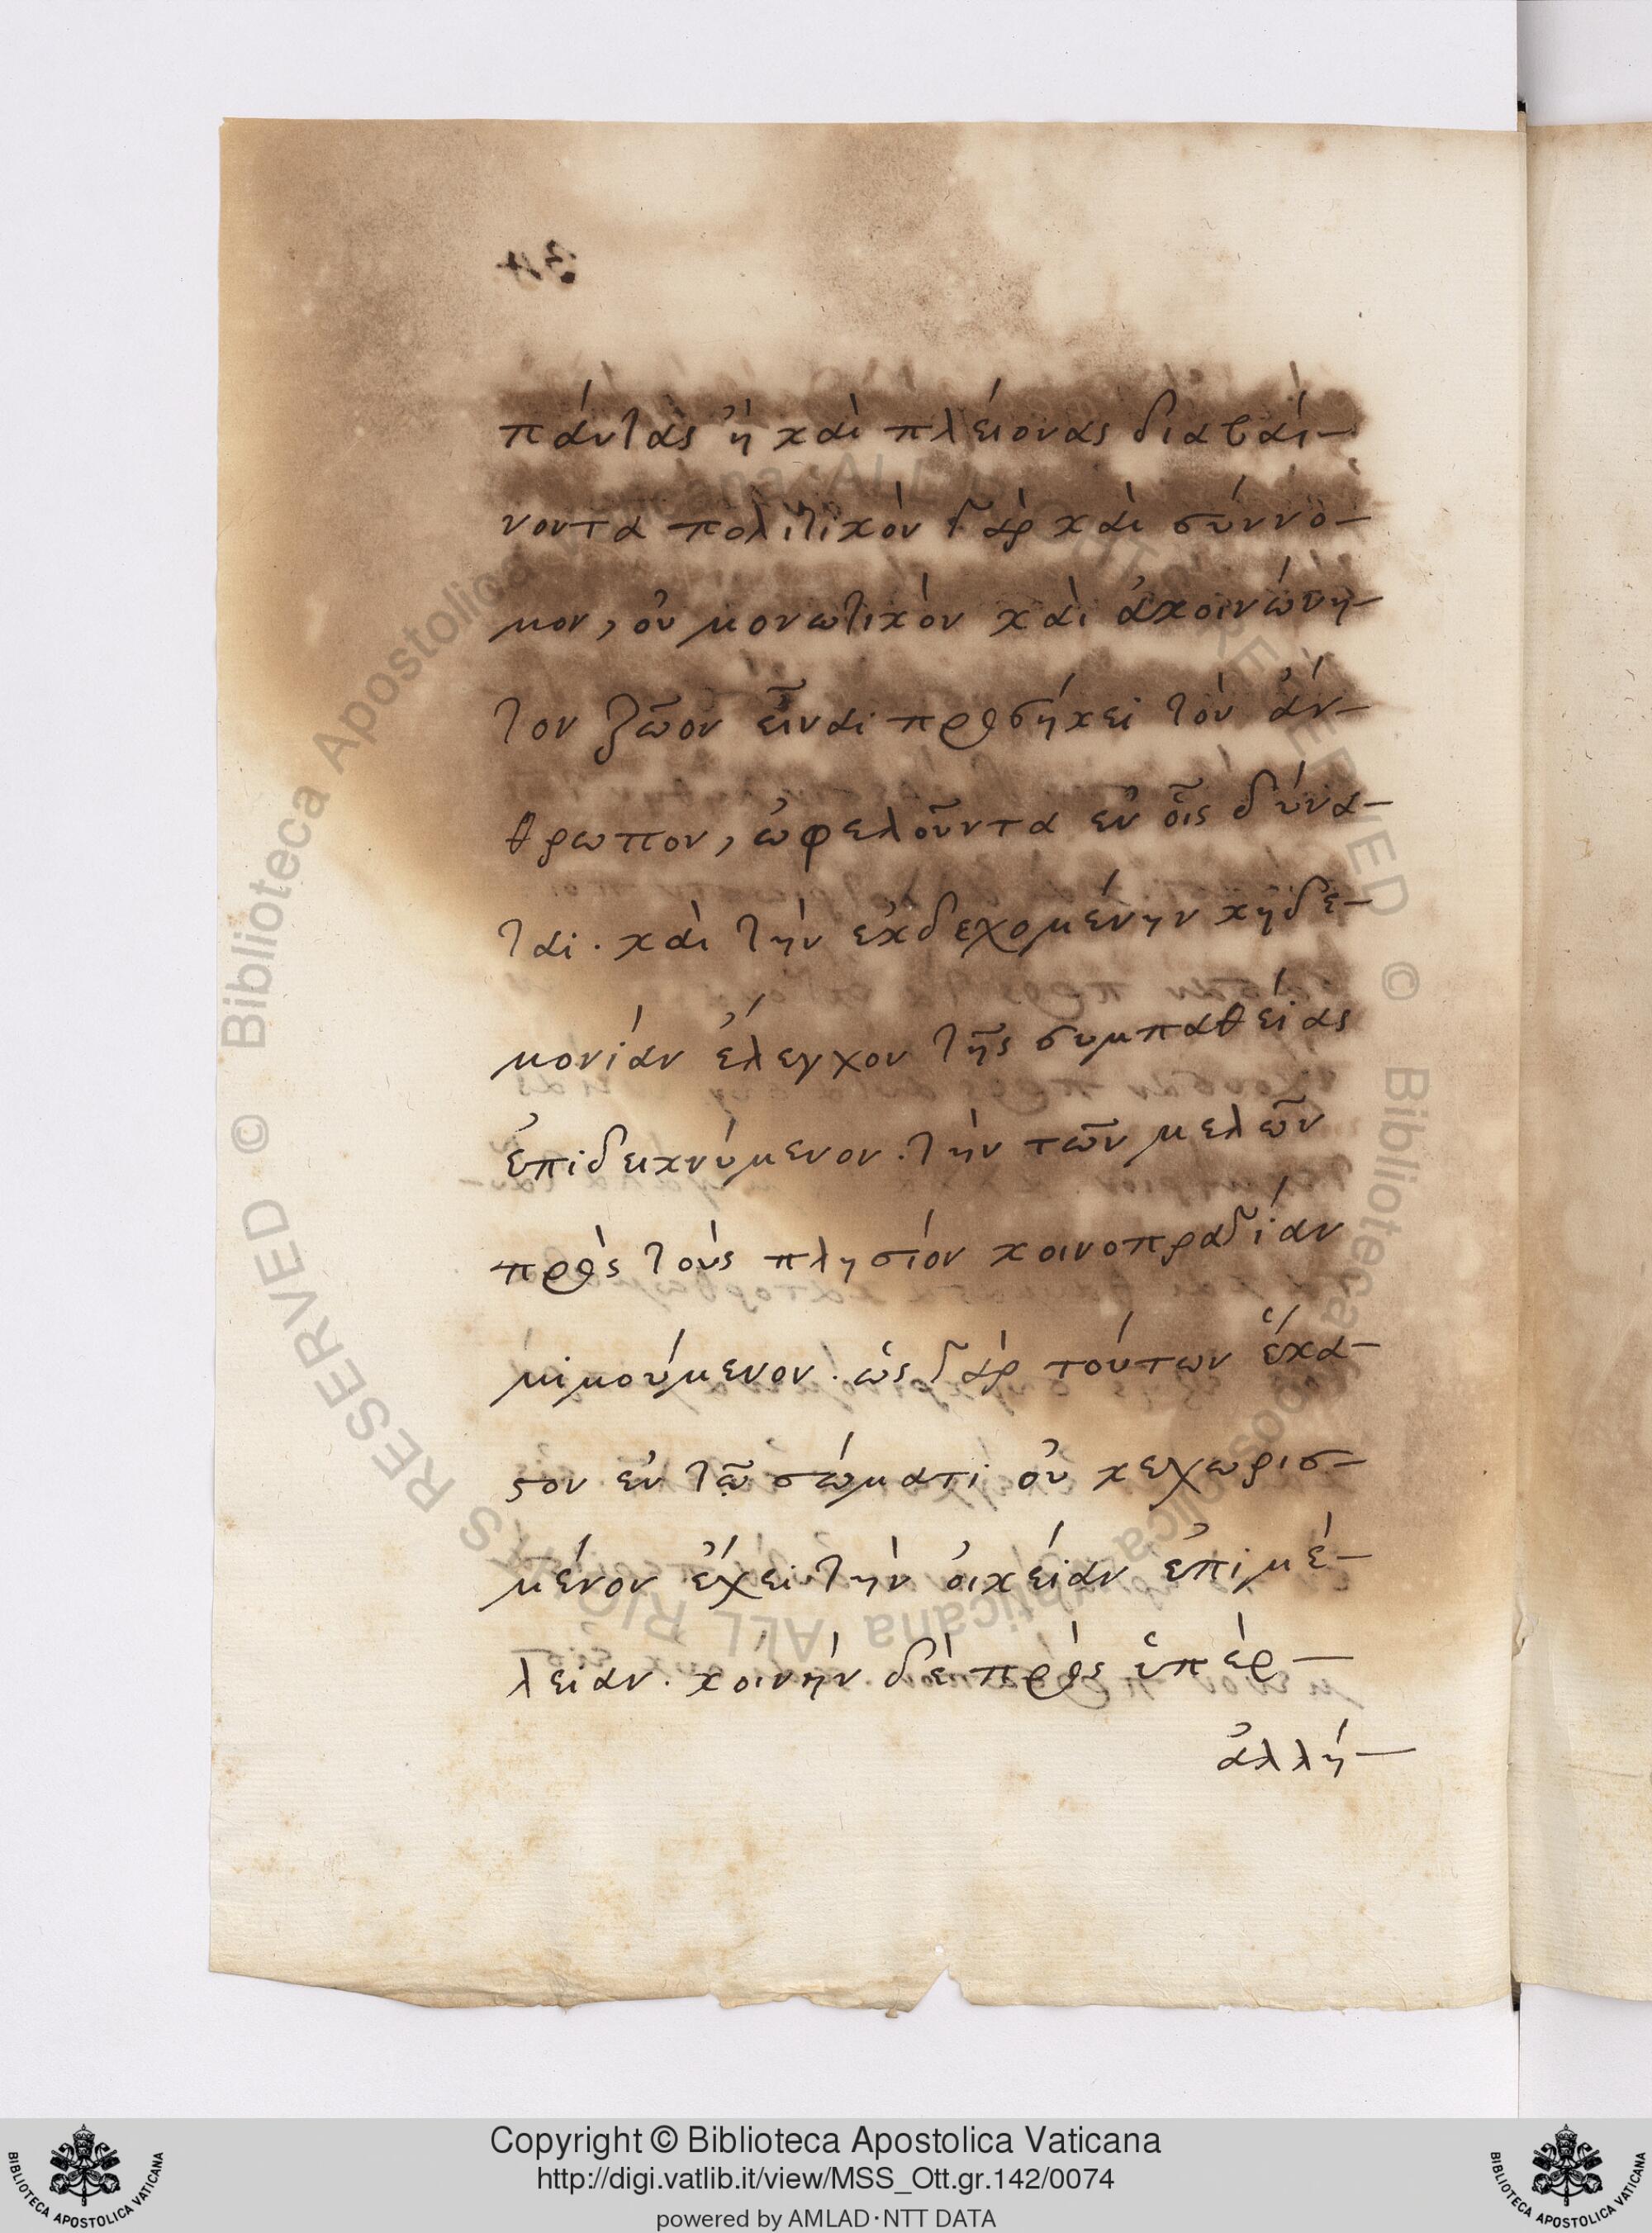 πάντας ἢ καὶ πλείονας διαβαί-
νοντα πολιτικὸν γὰρ καὶ σύννο-
μον, οὐ μονωτικὸν καὶ ἀκοινώνη-
τον ζῶον εἶναι προσήκει τὸν ἄν-
θρωπον, ὠφελοῦντα ἐν οἷς δύνα-
ται. καὶ τὴν ἐκδεχομένην κηδε-
μονίαν ἔλεγχον τῆς συμπαθείας
ἐπιδεικνύμενον. τὴν τῶν μελῶν
πρὸς τοὺς πλησίον κοινοπραγίαν
μιμούμενον. ὡς γὰρ τούτων ἕκα-
στον ἐν τῷ σώματι οὐ κεχωρισ-
μένον ἔχει τὴν οἰκείαν ἐπιμέ-
λειαν. κοινὴν δὲ πρὸς ὑπὲρ-
ἀλλή-
Copyright © Biblioteca Apostolica Vaticana
http://digi.vatlib.it/view/MSS_Ott.gr.142/0074
powered by AMLAD·NTT DATA
BIBLIOTECA APOSTOLICA VATICANA
BIBLIOTECA APOSTOLICA VATICANA